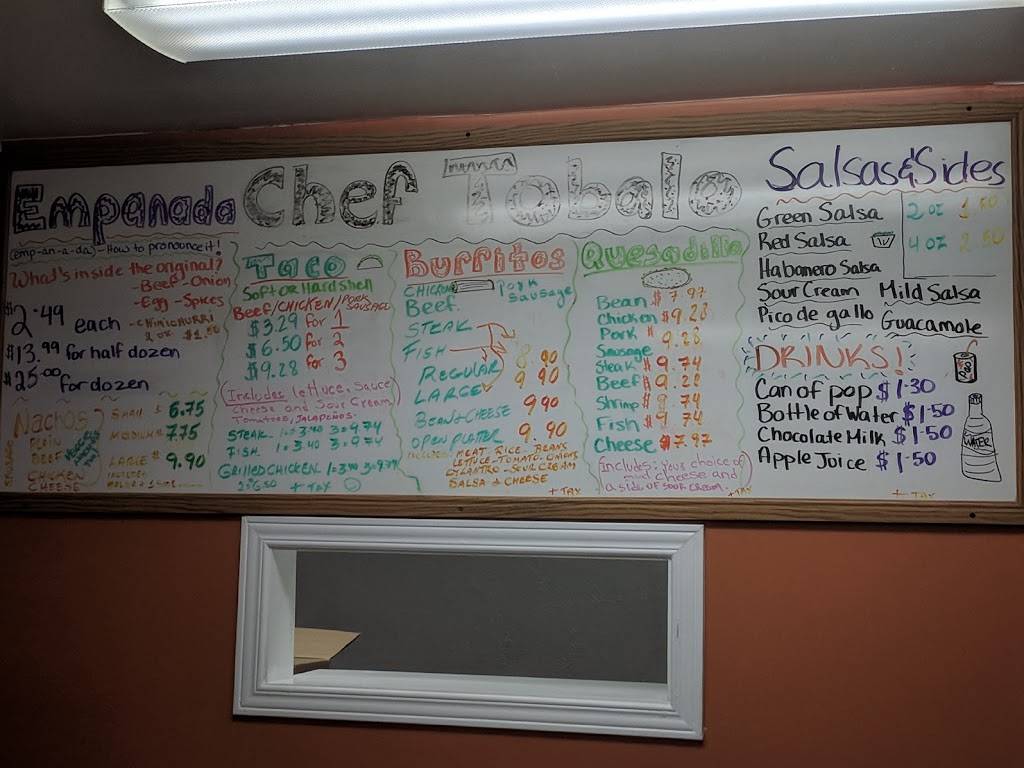 Chef Tobalo
Empanada
(emp-an-a-da) - How to pronounce it!
What's inside the original?
- Beef - Onion
- Egg - Spices
- CHIMICHURRI
2 oz $1.50
$2.49 each
$13.99 for half dozen
$25.00 for dozen
Nachos
PLAIN
BEEF
CHICKEN
CHEESE
SAUSAGE
SMALL $ 6.75
MEDIUM $ 7.75
LARGE $ 9.90
Taco
Soft OR Hard shell
BEEF/CHICKEN/PORK SAUSAGE
$3.29 for 1
$6.50 for 2
$9.28 for 3
(Includes lettuce, Sauce
Cheese and Sour Cream
Tomatoes, JALAPEÑOS.
STEAK 1=3.40 3=9.74
FISH. 1=3.40 3=9.74
GRILLED CHICKEN 1=3.40 3=9.74
2=6.50 + TAX
Burritos
CHICKEN
Pork Sausage
Beef.
STEAK
FISH
REGULAR 8.90
LARGE 9.90
BEAN & CHEESE 9.90
OPEN PLATER 9.90
INCLUDES: MEAT RICE BEANS
LETTUCE - TOMATO - ONIONS
CILANTRO - SOUR CREAM
SALSA & CHEESE
+ TAX
Quesadilla
Bean $7.97
Chicken $9.28
Pork $9.28
Sausage
Steak $9.74
Beef $9.28
Shrimp $9.74
Fish $9.74
Cheese $7.97
(Includes: your choice of
meat cheese and
a side of sour cream.
+TAX
Salsas & Sides
Green Salsa
Red Salsa
2 oz 1.50
4 oz 2.50
Habanero Salsa
Sour Cream Mild Salsa
Pico de gallo Guacamole
DRINKS!
Can of pop $1.30
Bottle of Water $1.50
Chocolate Milk $1.50
Apple Juice $1.50
WATER
+ TAX